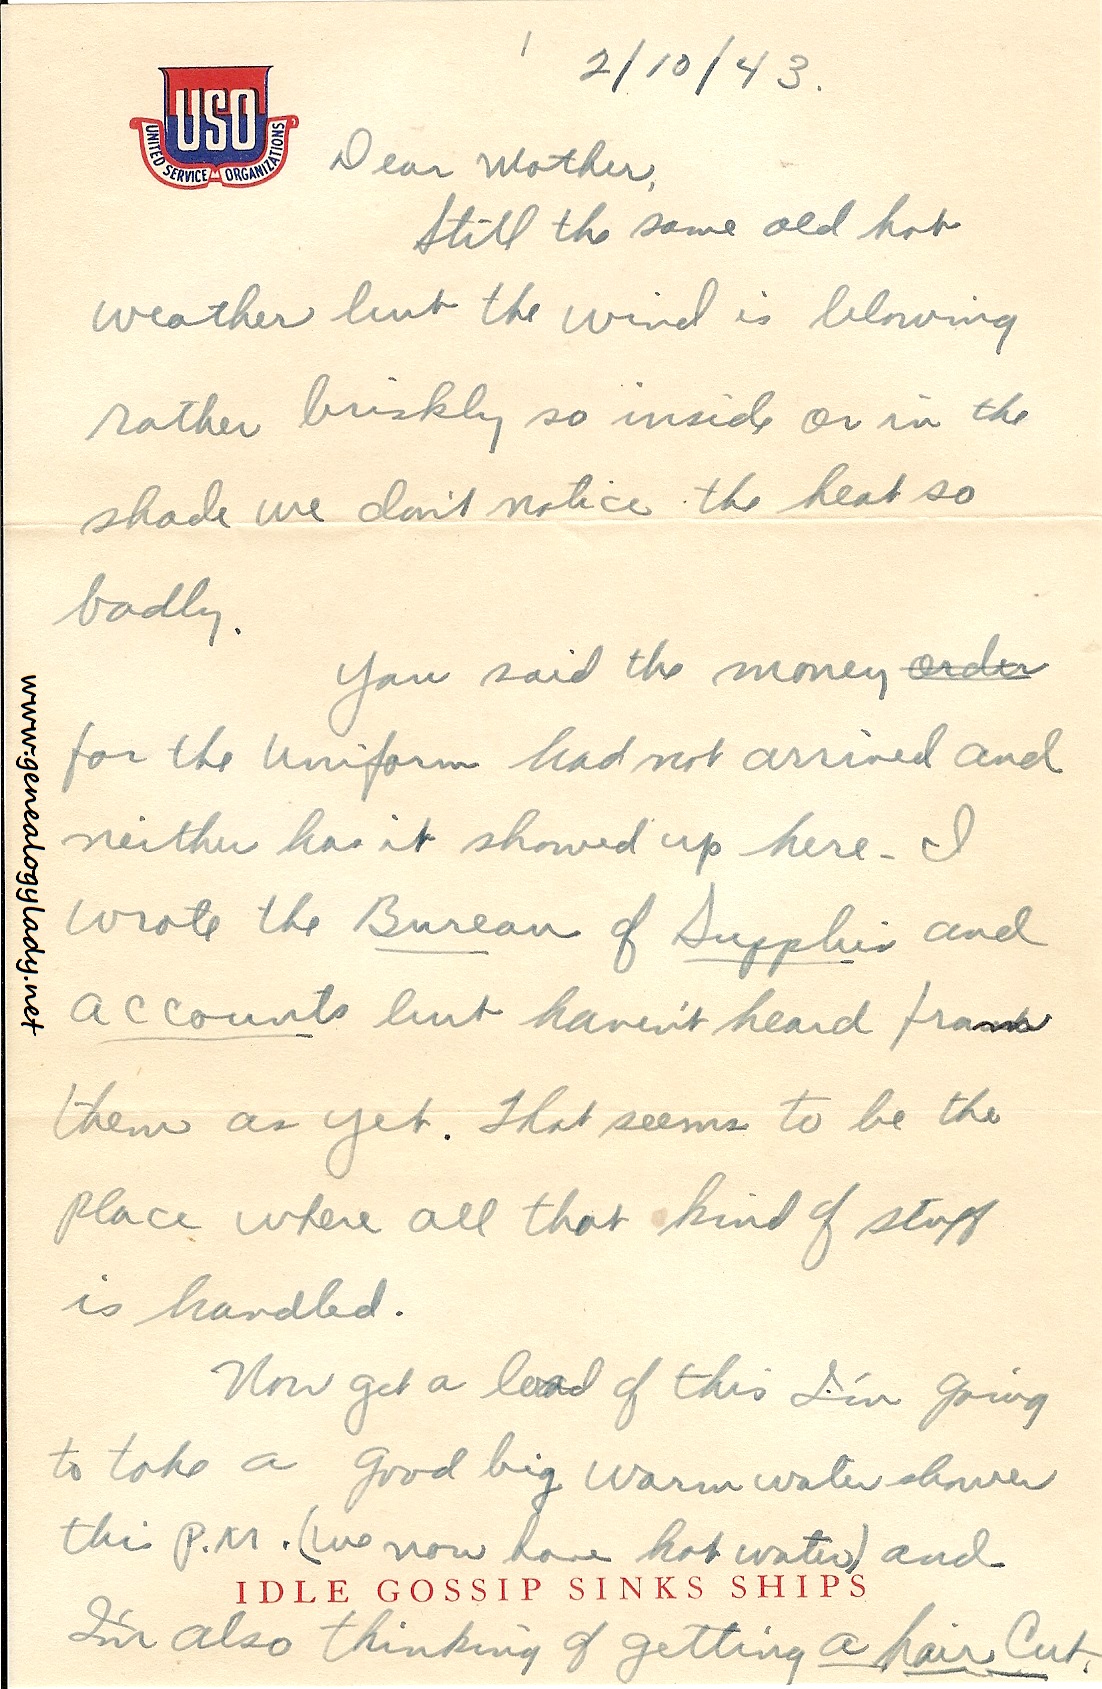 1
2/10/43.
USO
UNITED SERVICE ORGANIZATIONS
Dear Mother,
Still the same old hot
weather but the wind is blowing
rather briskly so inside or in the
shade we don't notice the heat so
badly.
You said the money order
for the Uniform had not arrived and
neither has it showed up here - I
wrote the Bureau of Supplies and
accounts but haven't heard from
them as yet. That seems to be the
place where all that kind of stuff
is handled.
Now get a load of this I'm going
to take a good big warm water shower
this P.M. (we now have hot water) and
IDLE GOSSIP SINKS SHIPS
I'm also thinking of getting a hair Cut.
www.genealogylady.net